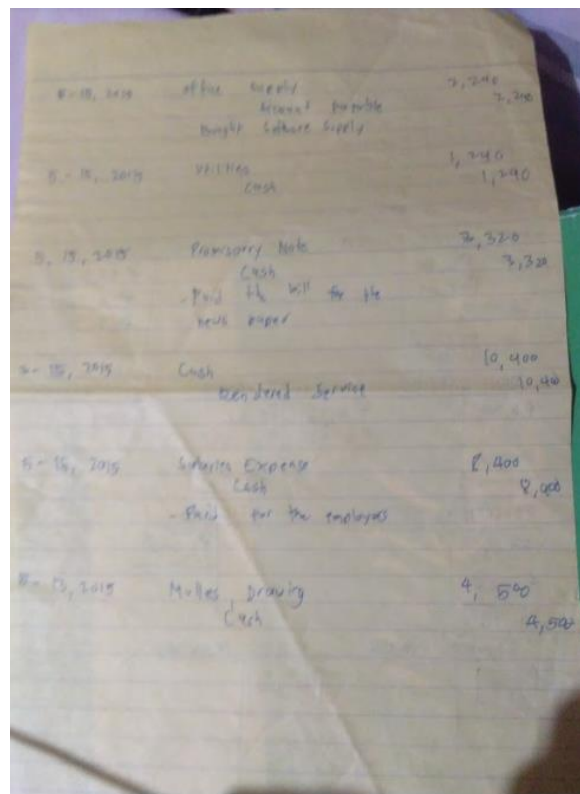 5-15, 2015 office supply 2,240
Account payable 2,240
Bought software supply
5-15, 2015 Utilities 1,290
Cash 1,290
5, 15, 2015 Promissory Note 3,320
Cash 3,320
- Paid the bill for the
news paper
15, 2015 Cash 10,400
Rendered Service 10,400
5-15, 2015 Salaries Expense 8,400
Cash 8,400
- Paid for the employees
2015 Drawing 4,500
Cash 4,500